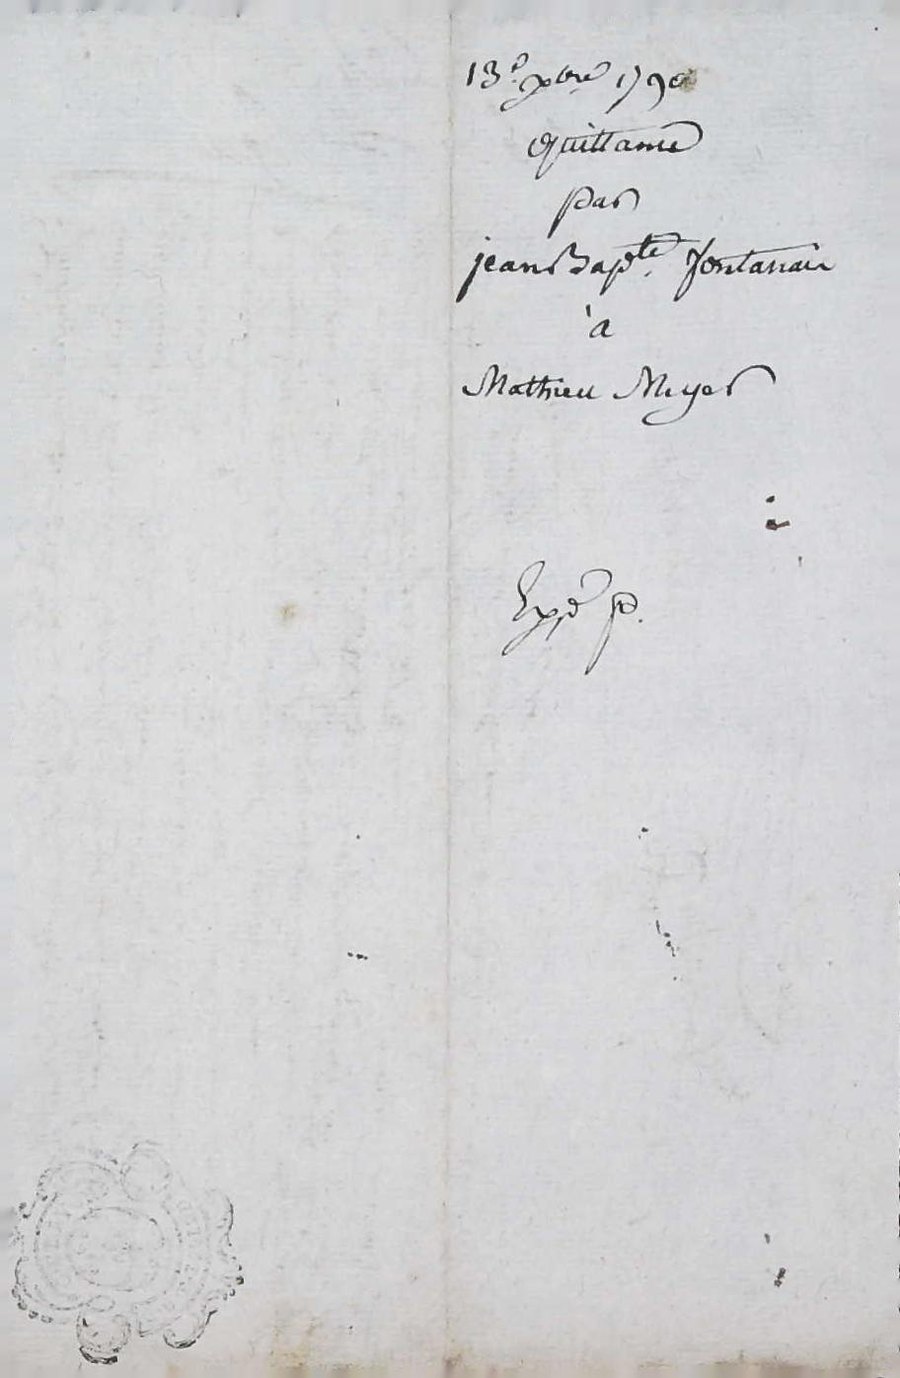 13.e xbre 1790
Quittance
par
jean Bapte. fontanaiu
à
Mathieu Meyer
Expé p.